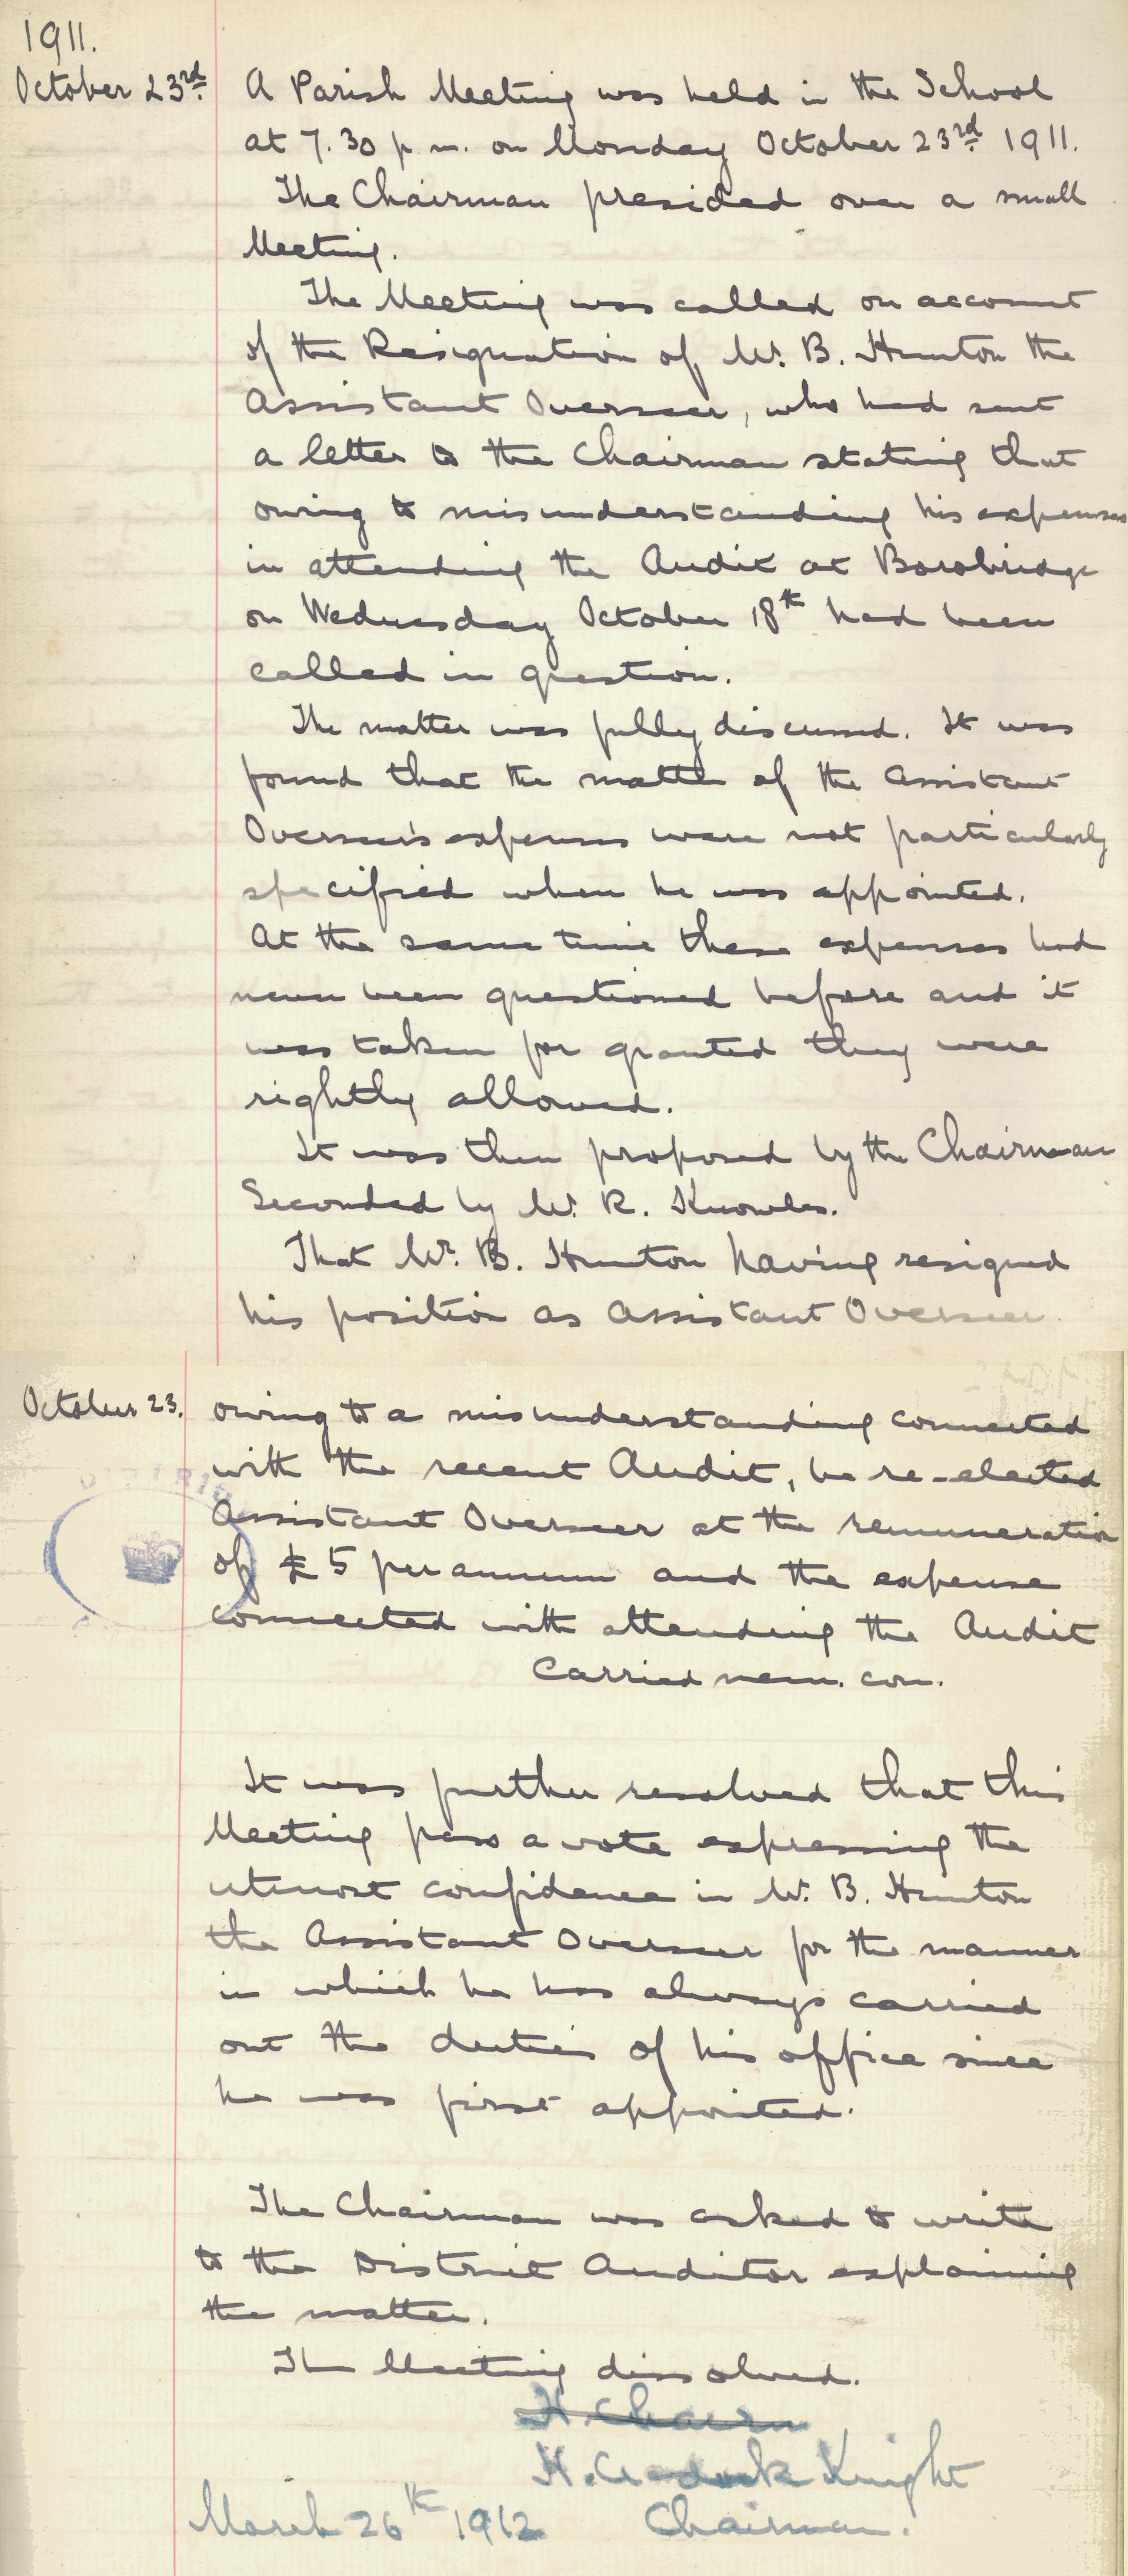 1911.
October 23rd. A Parish Meeting was held in the School
at 7.30 p.m. on Monday October 23rd 1911.
The Chairman presided over a small
Meeting.
The Meeting was called on account
of the Resignation of Mr. B. Hunton the
Assistant Overseer, who had sent
a letter to the Chairman stating that
owing to misunderstanding his expenses
in attending the Audit at Borobridge
on Wednesday October 18th had been
called in question.
The matter was fully discussed. It was
found that the matter of the Assistant
Overseer's expenses were not particularly
specified when he was appointed.
At the same time these expenses had
never been questioned before and it
was taken for granted they were
rightly allowed.
It was then proposed by the Chairman
Seconded by Mr. R. Knowles.
That Mr. B. Hunton having resigned
his position as Assistant Overseer
October 23. owing to a misunderstanding connected
with the recent Audit, be re-elected
Assistant Overseer at the remuneration
of £5 per annum and the expense
connected with attending the Audit
Carried nem. con.
It was further resolved that this
Meeting pass a vote expressing the
utmost confidence in Mr. B. Hunton
the Assistant Overseer for the manner
in which he has always carried
out the duties of his office since
he was first appointed.
The Chairman was asked to write
to the District Auditor explaining
the matter.
The Meeting dissolved.
H. Chairm
H. Knight
March 26th 1912 Chairman.